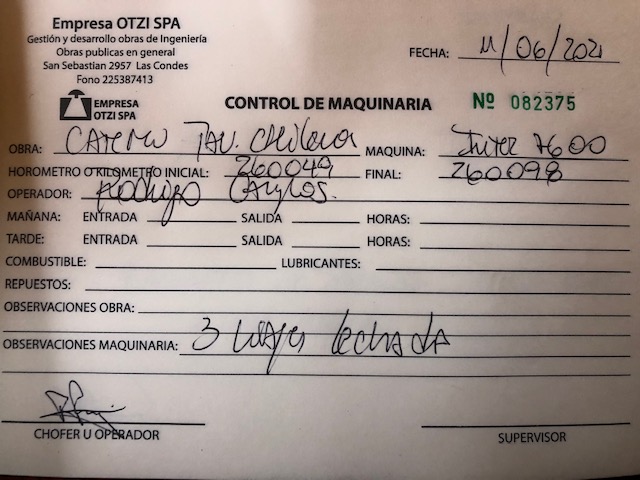 Empresa OTZI SPA
Gestión y desarrollo obras de Ingeniería
Obras publicas en general
San Sebastian 2957 Las Condes
Fono 225387413
FECHA: 11/06/2021
EMPRESA
OTZI SPA
CONTROL DE MAQUINARIA
Nº 082375
OBRA: MAQUINA: 7600
HOROMETRO O KILOMETRO INICIAL: 260049 FINAL: 260098
OPERADOR: Rodrigo
MAÑANA: ENTRADA SALIDA HORAS:
TARDE: ENTRADA SALIDA HORAS:
COMBUSTIBLE: LUBRICANTES:
REPUESTOS:
OBSERVACIONES OBRA:
OBSERVACIONES MAQUINARIA: 3 viajes lechada
CHOFER U OPERADOR
SUPERVISOR